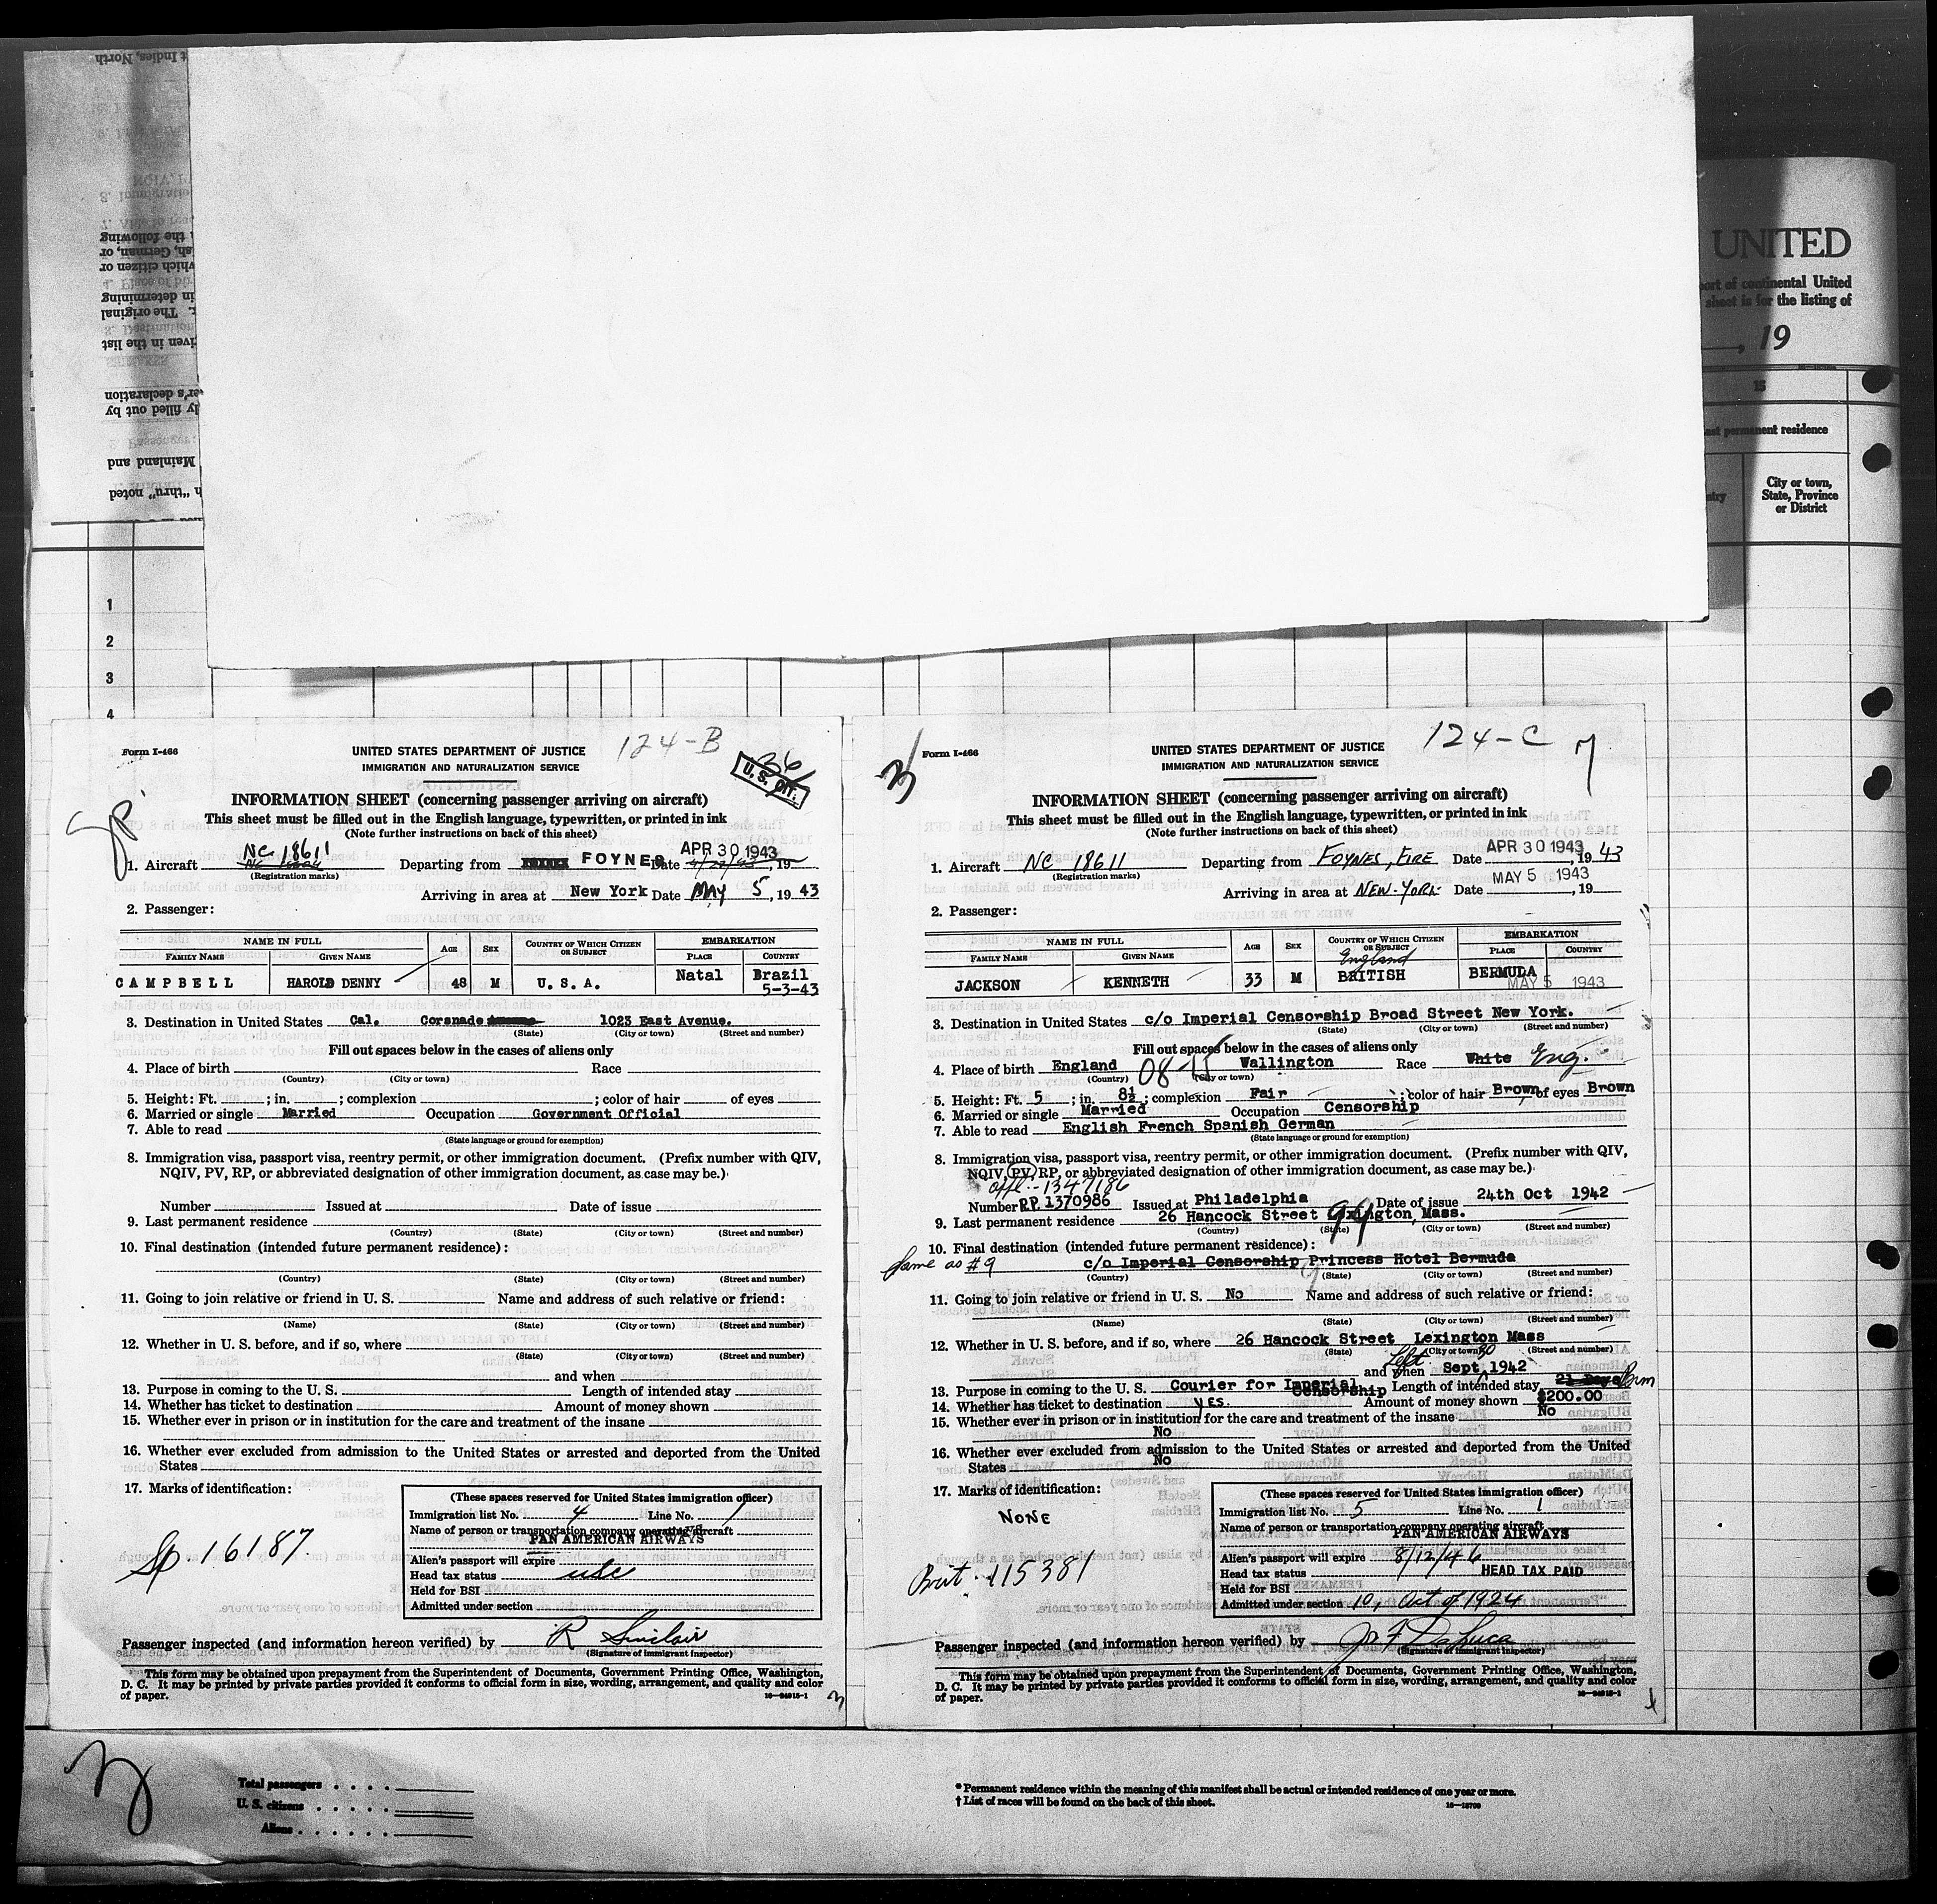 UNITED
port of continental United
sheet is for the listing of
, 19
15
last permanent residence
City or town,
State, Province
or District
1
2
3
4
Form I-466
UNITED STATES DEPARTMENT OF JUSTICE
IMMIGRATION AND NATURALIZATION SERVICE
124-B
36
U. S. CIT.
INFORMATION SHEET (concerning passenger arriving on aircraft)
This sheet must be filled out in the English language, typewritten, or printed in ink
(Note further instructions on back of this sheet)
1. Aircraft NC 18611 Departing from FOYNES Date APR 30 1943, 19
(Registration marks)
Arriving in area at New York Date MAY 5, 19 43
2. Passenger:
NAME IN FULL AGE SEX COUNTRY OF WHICH CITIZEN OR SUBJECT EMBARKATION
FAMILY NAME GIVEN NAME PLACE COUNTRY
CAMPBELL HAROLD DENNY 48 M U. S. A. Natal Brazil
5-3-43
3. Destination in United States Cal. Coronado 1023 East Avenue.
(State) (City or town) (Street and number)
Fill out spaces below in the cases of aliens only
4. Place of birth Race
(Country) (City or town)
5. Height: Ft. ; in. ; complexion ; color of hair of eyes
6. Married or single Married Occupation Government Official
7. Able to read
(State language or ground for exemption)
8. Immigration visa, passport visa, reentry permit, or other immigration document. (Prefix number with QIV,
NQIV, PV, RP, or abbreviated designation of other immigration document, as case may be.)
Number Issued at Date of issue
9. Last permanent residence
(Country) (State) (City or town) (Street and number)
10. Final destination (intended future permanent residence):
(Country) (State) (City or town) (Street and number)
11. Going to join relative or friend in U. S. Name and address of such relative or friend:
(Name) (State) (City or town) (Street and number)
12. Whether in U. S. before, and if so, where
(State) (City or town) (Street and number)
and when
13. Purpose in coming to the U. S. Length of intended stay
14. Whether has ticket to destination Amount of money shown
15. Whether ever in prison or in institution for the care and treatment of the insane
16. Whether ever excluded from admission to the United States or arrested and deported from the United
States
17. Marks of identification:
Sp 16187
(These spaces reserved for United States immigration officer)
Immigration list No. 4 Line No. 1
Name of person or transportation company operating aircraft
PAN AMERICAN AIRWAYS
Alien's passport will expire
Head tax status usc
Held for BSI
Admitted under section
Passenger inspected (and information hereon verified) by R Sinclair
(Signature of immigrant inspector)
This form may be obtained upon prepayment from the Superintendent of Documents, Government Printing Office, Washington,
D. C. It may be printed by private parties provided it conforms to official form in size, wording, arrangement, and quality and color
of paper.
Form I-466
UNITED STATES DEPARTMENT OF JUSTICE
IMMIGRATION AND NATURALIZATION SERVICE
124-C
INFORMATION SHEET (concerning passenger arriving on aircraft)
This sheet must be filled out in the English language, typewritten, or printed in ink
(Note further instructions on back of this sheet)
1. Aircraft NC 18611 Departing from FOYNES, EIRE Date APR 30 1943, 19 43
(Registration marks)
Arriving in area at NEW-YORK Date MAY 5 1943, 19
2. Passenger:
NAME IN FULL AGE SEX COUNTRY OF WHICH CITIZEN OR SUBJECT EMBARKATION
FAMILY NAME GIVEN NAME PLACE COUNTRY
England
JACKSON KENNETH 33 M BRITISH BERMUDA
MAY 5 1943
3. Destination in United States c/o Imperial Censorship Broad Street New York.
(State) (City or town) (Street and number)
Fill out spaces below in the cases of aliens only
4. Place of birth England Wallington Race White Eng.
(Country) (City or town)
5. Height: Ft. 5 ; in. 8½ ; complexion Fair ; color of hair Brown of eyes Brown
6. Married or single Married Occupation Censorship
7. Able to read English French Spanish German
(State language or ground for exemption)
8. Immigration visa, passport visa, reentry permit, or other immigration document. (Prefix number with QIV,
NQIV, PV, RP, or abbreviated designation of other immigration document, as case may be.)
1347186
Number RP 1370986 Issued at Philadelphia Date of issue 24th Oct 1942
9. Last permanent residence 26 Hancock Street Lexington, Mass.
(Country) (State) (City or town) (Street and number)
10. Final destination (intended future permanent residence):
Same as #9 c/o Imperial Censorship Princess Hotel Bermuda
(Country) (State) (City or town) (Street and number)
11. Going to join relative or friend in U. S. No Name and address of such relative or friend:
(Name) (State) (City or town) (Street and number)
12. Whether in U. S. before, and if so, where 26 Hancock Street Lexington Mass
(State) (City or town) (Street and number)
Left and when Sept 30 1942
13. Purpose in coming to the U. S. Courier for Imperial Censorship Length of intended stay 21 Days
14. Whether has ticket to destination YES. Amount of money shown $200.00
15. Whether ever in prison or in institution for the care and treatment of the insane No
No
16. Whether ever excluded from admission to the United States or arrested and deported from the United
States No
17. Marks of identification:
NONE
Brit. 115381
(These spaces reserved for United States immigration officer)
Immigration list No. 5 Line No. 1
Name of person or transportation company operating aircraft
PAN AMERICAN AIRWAYS
Alien's passport will expire 8/12/46
Head tax status HEAD TAX PAID
Held for BSI
Admitted under section 10, Act of 1924
Passenger inspected (and information hereon verified) by
(Signature of immigrant inspector)
This form may be obtained upon prepayment from the Superintendent of Documents, Government Printing Office, Washington,
D. C. It may be printed by private parties provided it conforms to official form in size, wording, arrangement, and quality and color
of paper.
Total passengers . . . .
U. S. citizens . . . . .
Aliens . . . . . .
* Permanent residence within the meaning of this manifest shall be actual or intended residence of one year or more.
† List of races will be found on the back of this sheet.